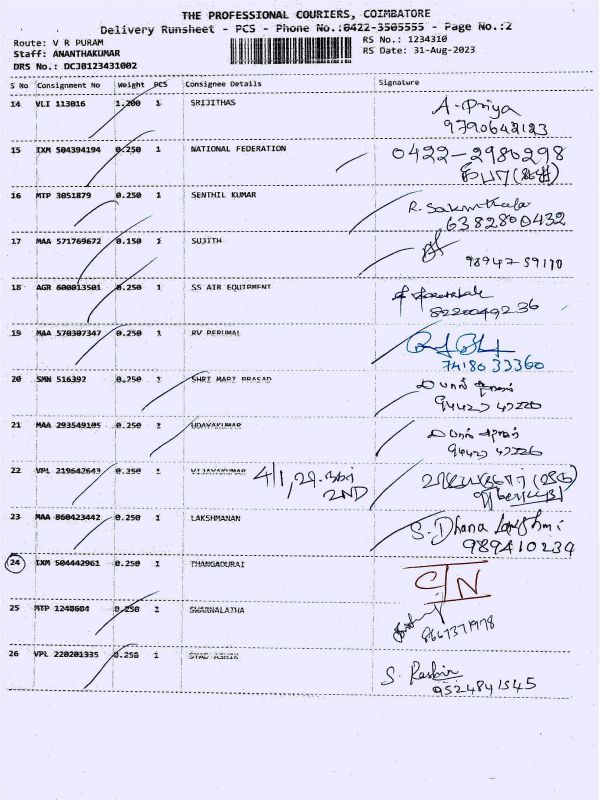 THE PROFESSIONAL COURIERS, COIMBATORE
Delivery Runsheet - PCS - Phone No.:0422-3505555 - Page No.:2
Route: V R PURAM
RS No.: 1234310
Staff: ANANTHAKUMAR
RS Date: 31-Aug-2023
DRS No.: DCJB123431002
S No Consignment No Weight PCS Consignee Details Signature
14 VLI 113016 1.200 1 SRIJITHAS A. Priya
9790642123
15 IXM 504394194 0.250 1 NATIONAL FEDERATION 0422-2980298
16 MTP 3051879 0.250 1 SENTHIL KUMAR R. Sakunthala
6382800432
17 MAA 571769672 0.150 1 SUJITH
98947-59110
18 AGR 600013501 0.250 1 SS AIR EQUIPMENT
8220049236
19 MAA 570307347 0.250 1 RV PERUMAL
74180 33360
20 SMN 516392 0.250 1 SHRI MARI PRASAD
21 MAA 293549105 0.250 1 UDAYAKUMAR
22 VPL 219642643 0.250 1 VIJAYAKUMAR 4/1,
2ND
23 MAA 860423442 0.250 1 LAKSHMANAN S. Dhana Lakshmi
989410239
24 IXM 504442961 0.250 1 THANGADURAI C/N
25 MTP 1248604 0.250 1 SWARNALATHA
8667371978
26 VPL 220201335 0.250 1 SYAD ASHIK S. Rashir
9524841545